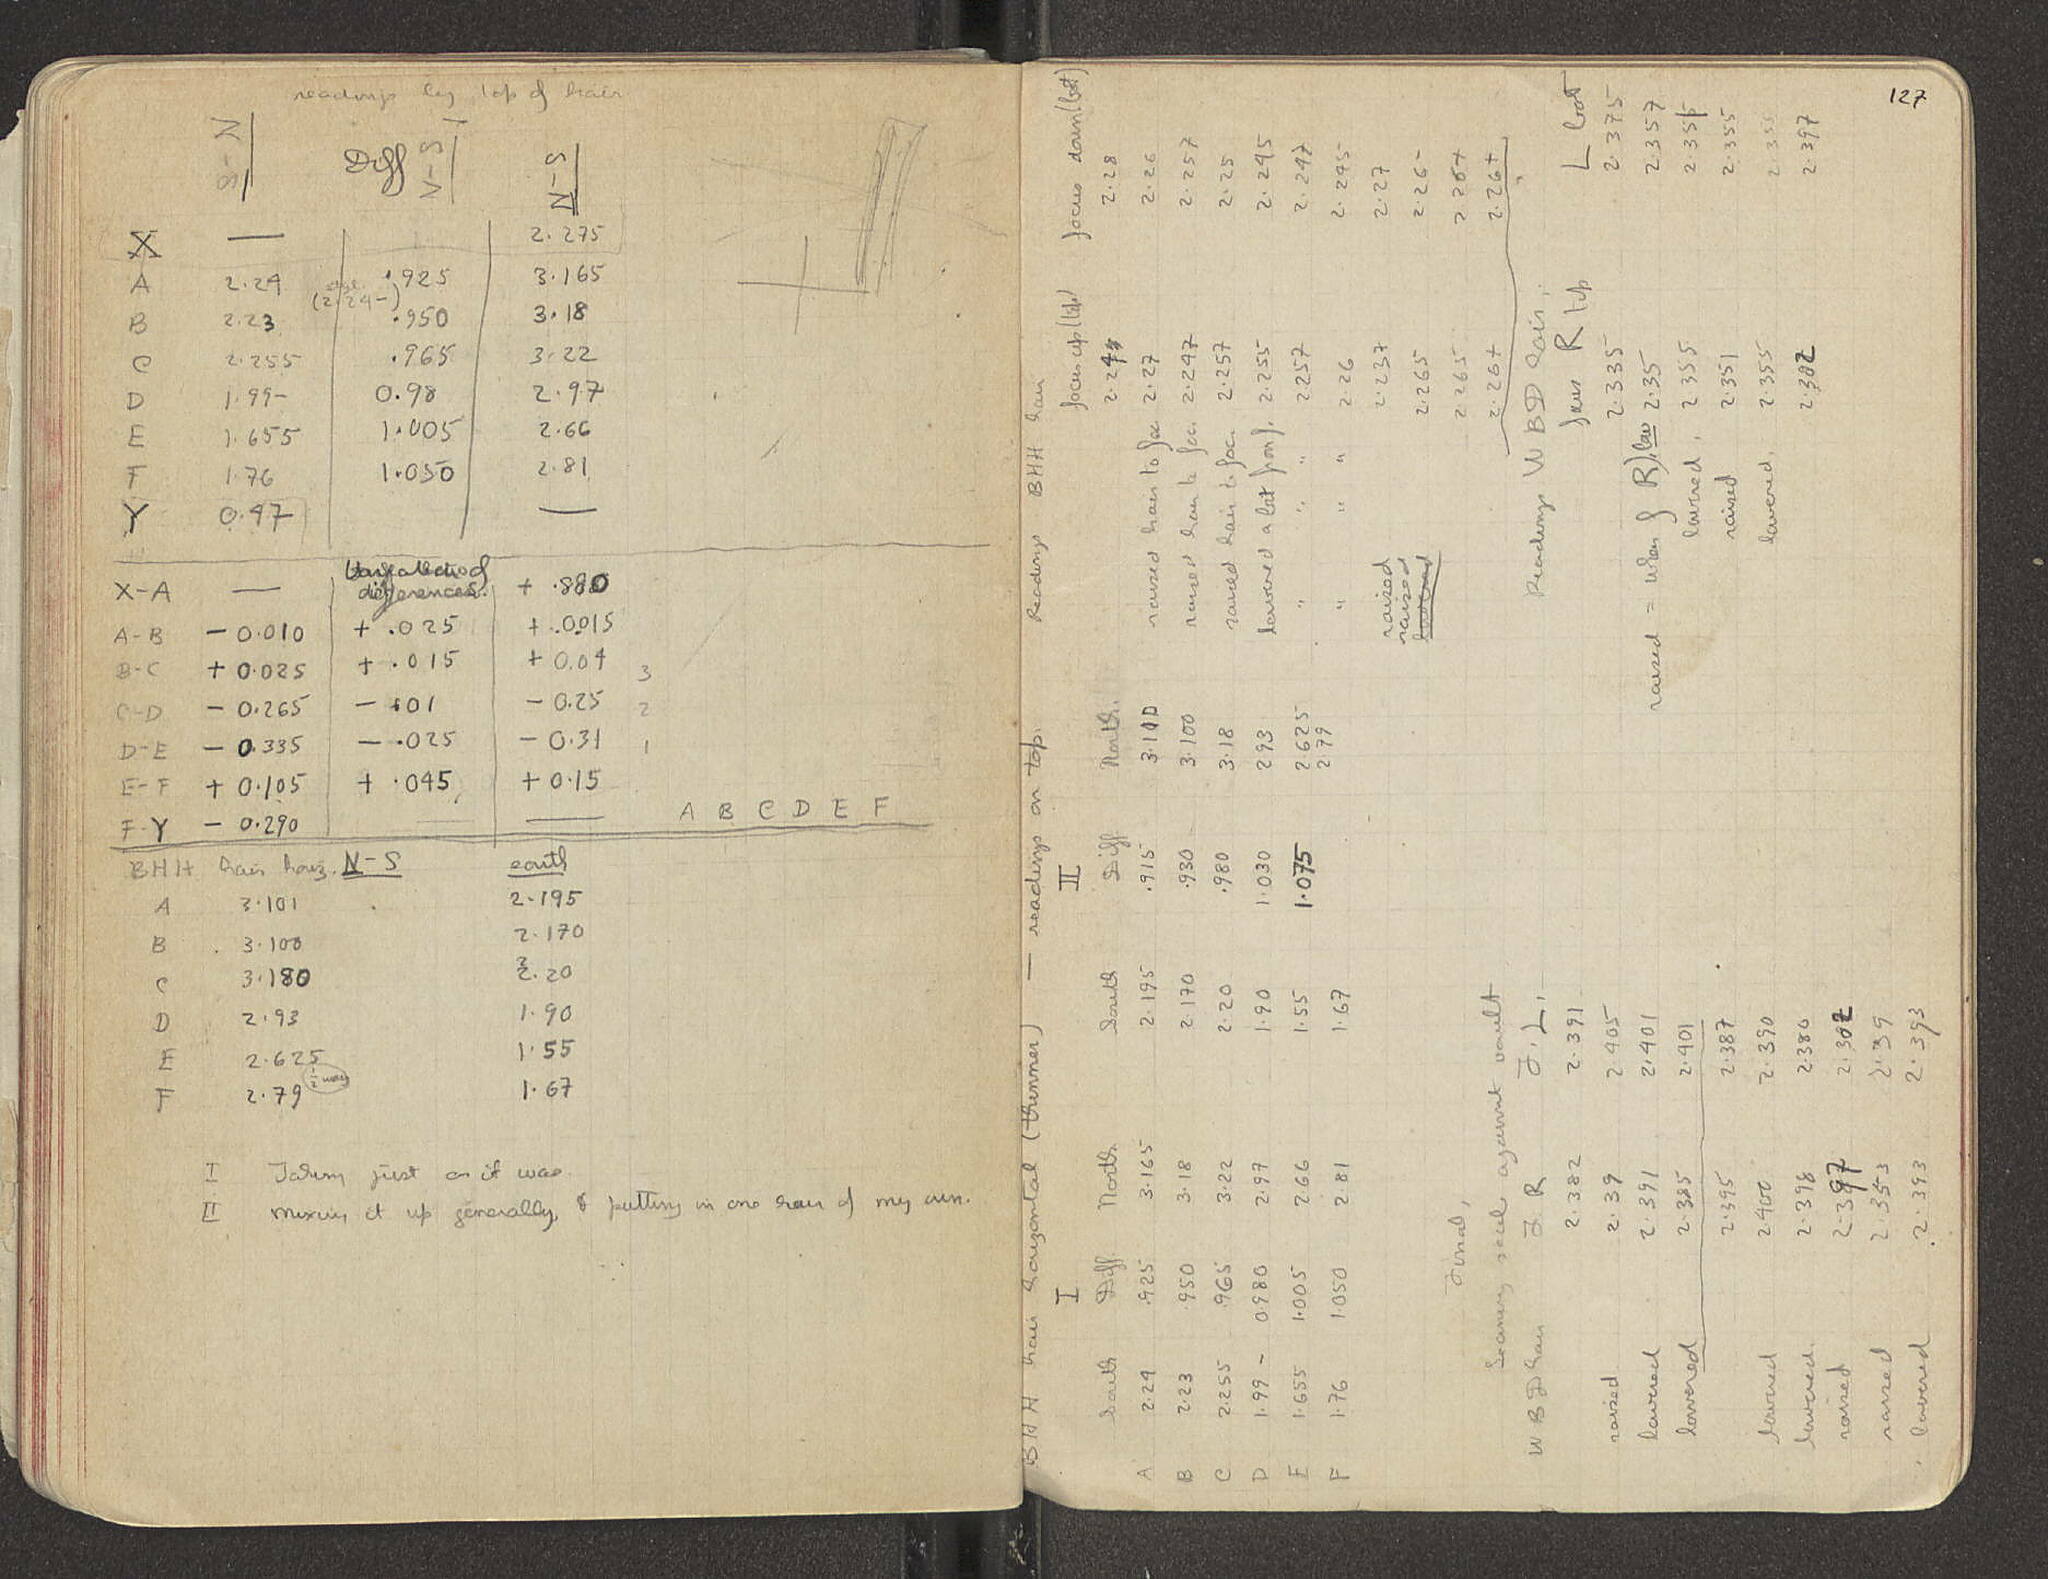 readings by top of hair
S-N Diff N-S N-S
X — 2.275
A 2.24 .925 3.165
(2.24-)
B 2.23 .950 3.18
C 2.255 .965 3.22
D 1.99- 0.98 2.97
E 1.655 1.005 2.66
F 1.76 1.050 2.81
Y 0.47 —
X-A — differences. + .880
A-B - 0.010 + .025 + .0015
B-C + 0.025 + .015 + 0.04 3
C-D - 0.265 - .01 - 0.25 2
D-E - 0.335 - .025 - 0.31 1
E-F + 0.105 + .045 + 0.15
F-Y - 0.290 —
A B C D E F
BHH hair horiz. N-S south
A 3.101 2.195
B 3.100 2.170
C 3.180 2.20
D 2.93 1.90
E 2.625 1.55
F 2.79 1.67
I Taking just as it was.
II mixing it up generally, & putting in one hair of my own.
127
BHH hair horizontal (thinner) — readings on top.
I II
South Diff. North South Diff North.
A 2.24 .925 3.165 2.195 .915 3.110
B 2.23 .950 3.18 2.170 .930 3.100
C 2.255 .965 3.22 2.20 .980 3.18
D 1.99- 0.980 2.97 1.90 1.030 2.93
E 1.655 1.005 2.66 1.55 1.075 2.625
F 1.76 1.050 2.81 1.67 2.79
Readings BHH hair
focus up (top) focus down (bot)
2.28
raised hair to foc. 2.27 2.26
raised hair to foc. 2.247 2.257
raised hair to foc. 2.257 2.25
lowered a lot from f. 2.255 2.245
" " 2.257 2.247
" " " 2.26 2.245
raised 2.237 2.27
raised 2.265 2.26-
2.265 2.26+
2.26+ 2.26+
Readings WBD hair.
Jaws R top L bot
2.335 2.375
raised = when R 2.35 2.357
lowered, 2.355 2.355
raised 2.351 2.355
lowered, 2.355 2.355
2.382 2.397
Final,
WBD hair J. R J. L.
2.382 2.391
raised. 2.39 2.405
lowered 2.391 2.401
lowered 2.385 2.401
2.395 2.387
lowered 2.400 2.390
lowered. 2.398 2.380
raised 2.397 2.382
raised 2.353 2.39
lowered 2.393 2.393